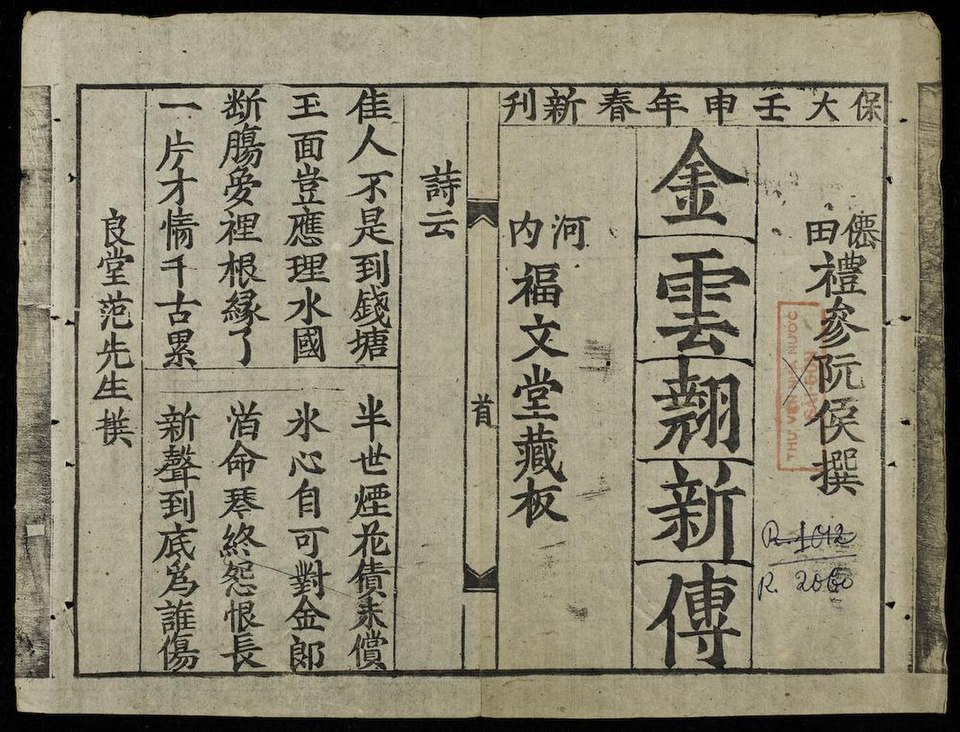 保大壬申年春新刊
僊田禮參阮侯撰
金雲翹新傳
河內福文堂藏板
首
詩云
佳人不是到錢塘 半世煙花債未償
玉面豈應理水國 氷心自可對金郎
断膓夢裡根緣了 泊命琴終怨恨長
一片才情千古累 新聲到底為誰傷
良堂范先生撰
R. 1012
R. 2060